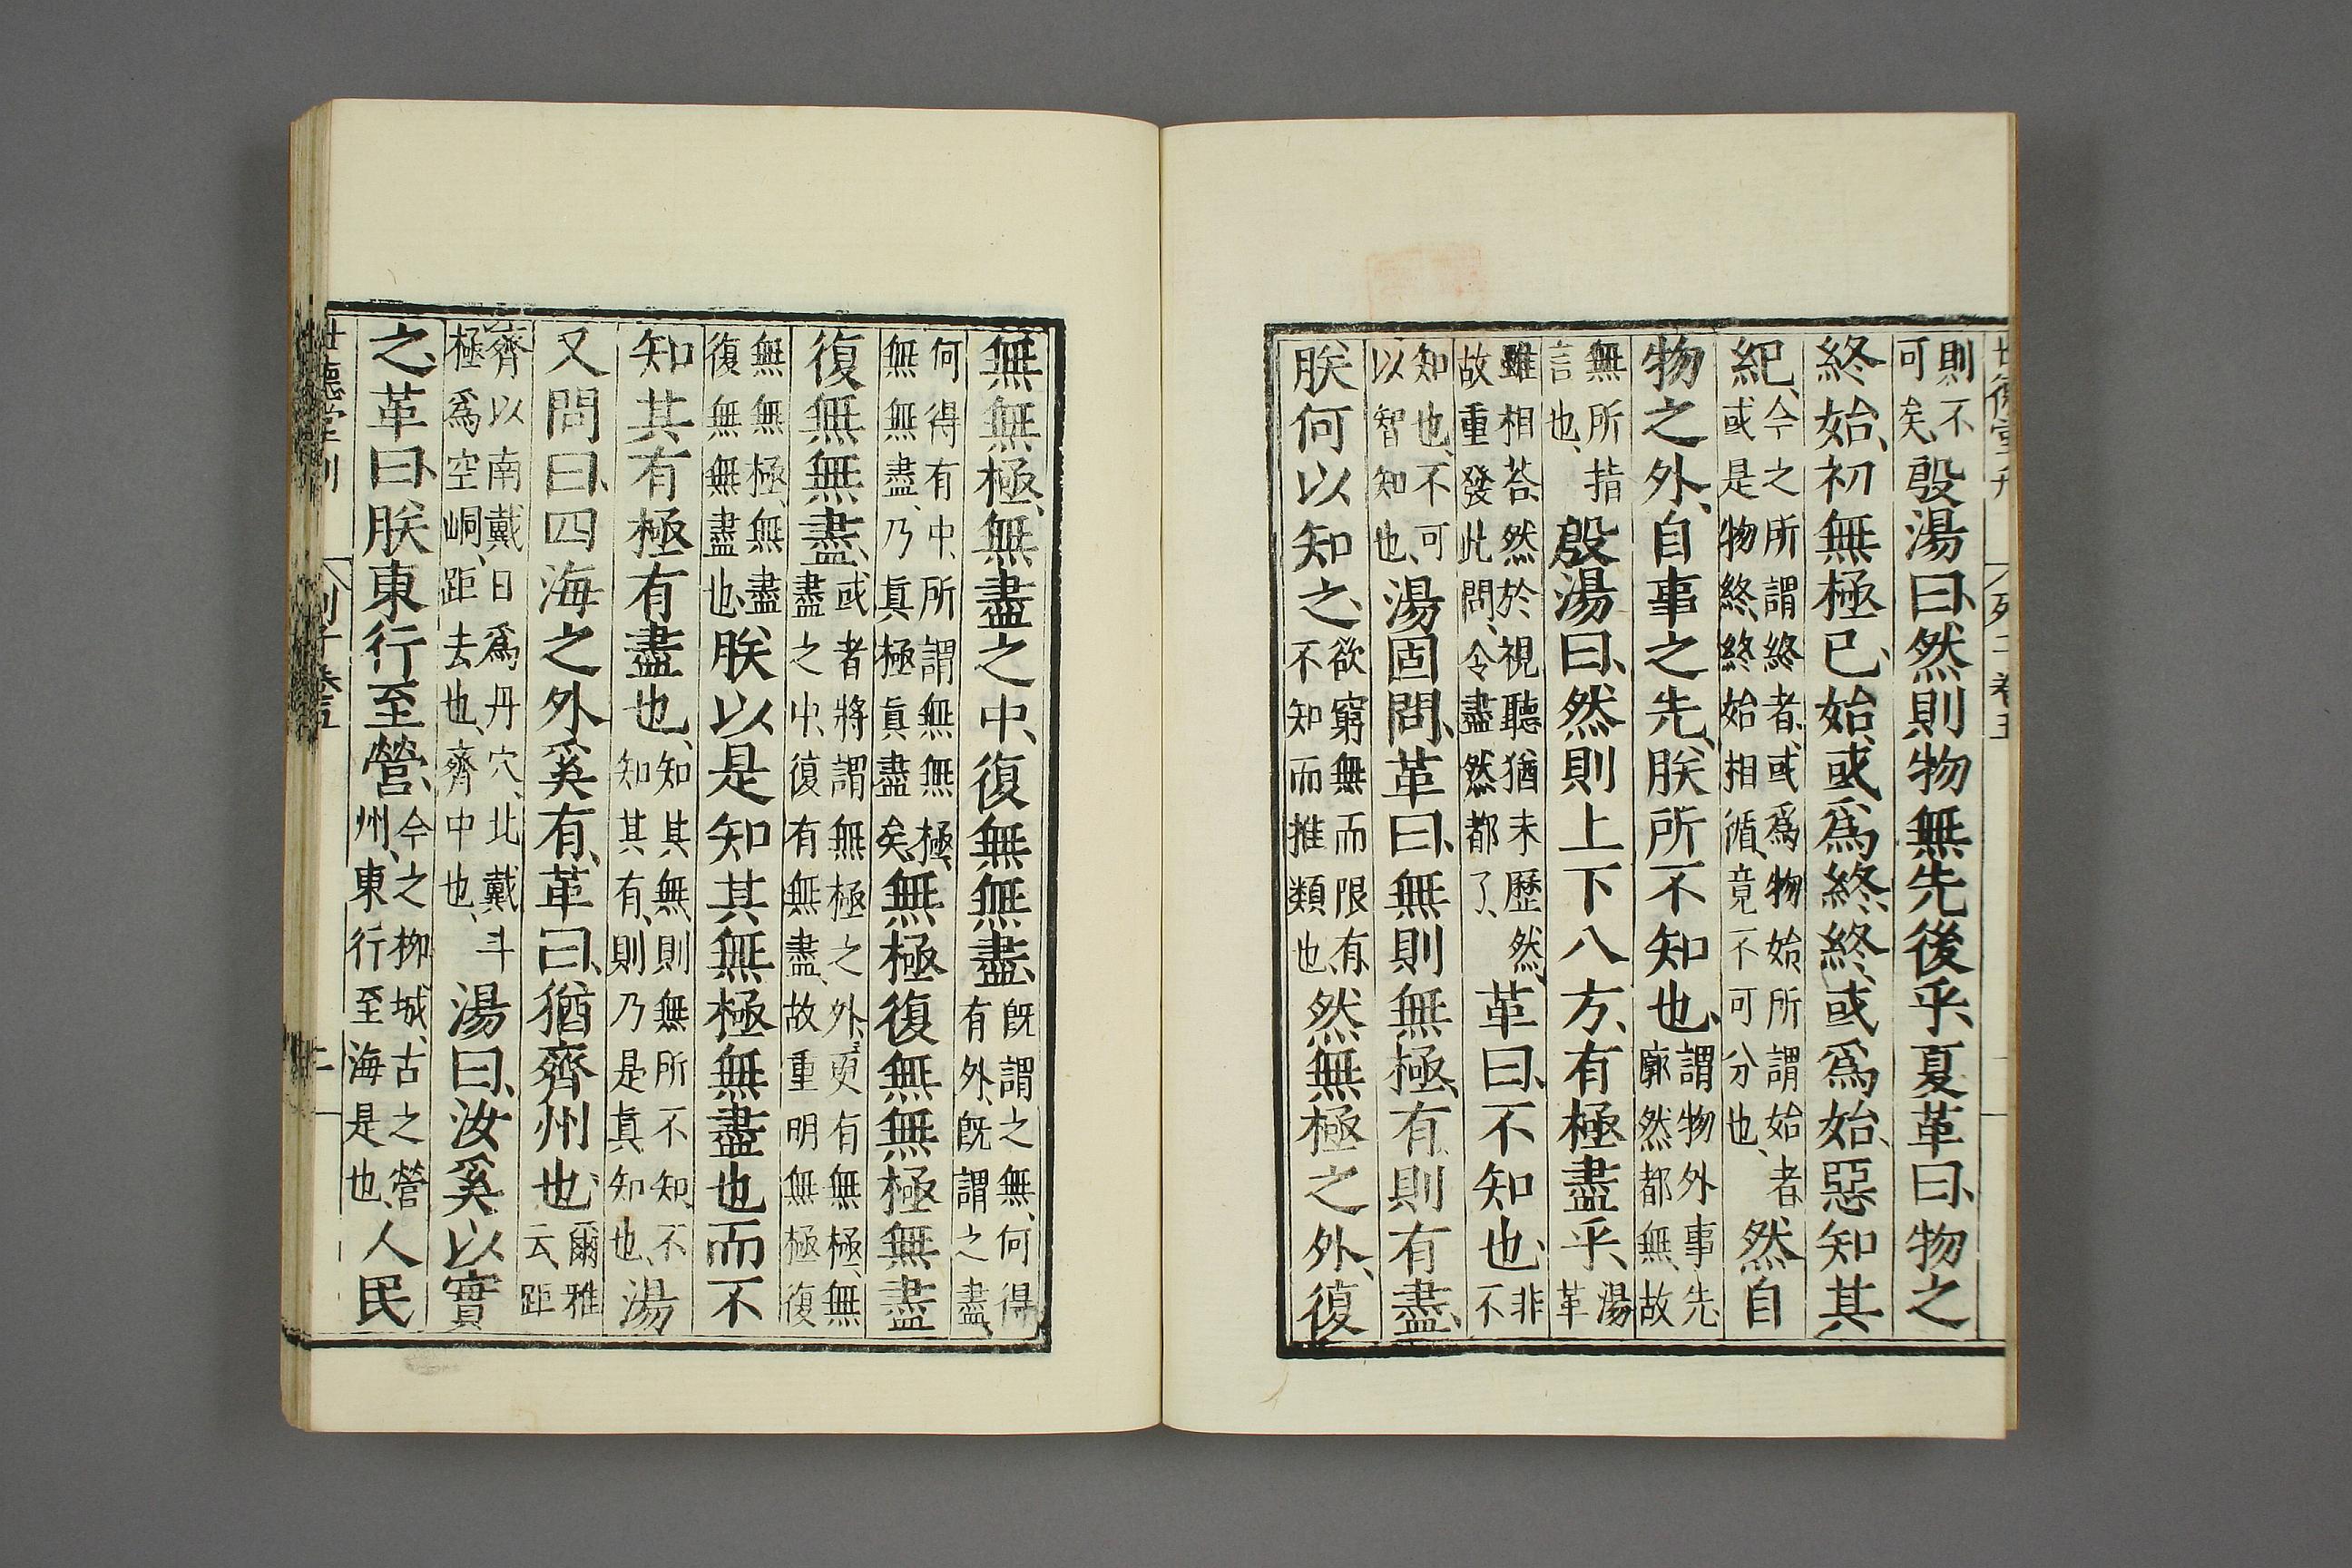 世德堂刊 列子卷五 一
則不可矣、殷湯曰、然則物無先後乎、夏革曰、物之
終始、初無極已、始或爲終、終或爲始、惡知其
紀、今之所謂終者、或爲物始、所謂始者或是物終、終始相循、竟不可分也、然自
物之外、自事之先、朕所不知也、謂物外事先、廓然都無、故
無所指言也、殷湯曰、然則上下八方、有極盡乎、湯革
雖相荅、然於視聽猶未歷然、故重發此問、令盡然都了、革曰、不知也、非不
知也、不可以智知也、湯固問、革曰、無則無極、有則有盡、
朕何以知之、欲窮無而限有、不知而推類也、然無極之外、復
無無極、無盡之中、復無無盡、既謂之無、何得有外、既謂之盡、
何得有中、所謂無無極、無無盡、乃眞極眞盡矣、無極復無無極無盡
復無無盡、或者將謂無極之外、更有無極、無盡之中、復有無盡、故重明無極復
無無極、無盡復無無盡也、朕以是知其無極無盡也而不
知其有極有盡也、知其無、則無所不知、不知其有、則乃是眞知也、湯
又問曰、四海之外奚有、革曰、猶齊州也、爾雅云、距
齊以南戴日爲丹穴、北戴斗極爲空峒、距去也、齊中也、湯曰、汝奚以實
之、革曰、朕東行至營、今之柳城、古之營州、東行至海是也、人民
世德堂刊 列子卷五 二